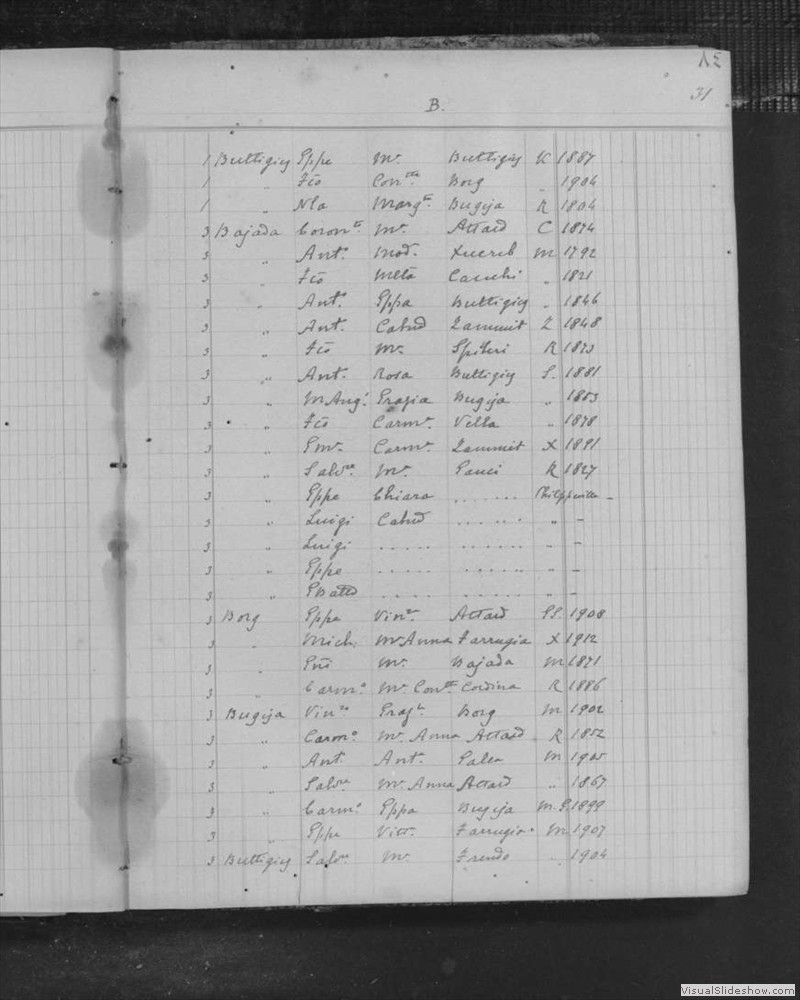 31
B.
1 Buttigieg Eppe Mª Buttigieg K 1887
1 " Fco Conctta Borg " 1904
1 " Nla Margta Bugeja R 1804
3 Bajada Coronta Mª Attard C 1874
3 " Anto Mad. Xuereb M 1792
3 " Fco Meta Cauchi " 1821
3 " Anto Eppa Buttigieg " 1846
3 " Ant. Catnd Zammit Z 1848
3 " Fco Mª Spiteri R 1873
3 " Ant. Rosa Buttigieg S. 1881
3 " M Angl Grazia Bugeja " 1853
3 " Fco Carma Vella " 1878
3 " Eml Carma Zammit X 1891
3 " Salvre Mª Gauci R 1827
3 " Eppe Chiara ...... Philippeville –
3 " Luigi Catnd ...... " –
3 " Luigi ..... ...... " –
3 " Eppe ..... ...... " –
3 " GBatta ..... ...... " –
3 Borg Eppe Vinza Attard SS. 1908
3 " Mich. Mª Anna Farrugia X 1912
3 " Mª Bajada M 1871
3 " Carmo Mª Contta Cordina R 1886
3 Bugeja Vinzo Grazia Borg M 1902
3 " Carmo Mª Anna Attard R 1852
3 " Ant. Anta Galea M 1905
3 " Salvre Mª Anna Attard " 1867
3 " Carmo Eppa Bugeja M.G. 1899
3 " Eppe Vitt. Farrugia M 1907
3 Buttigieg Salvre Mª Frendo " 1904
VisualSlideshow.com